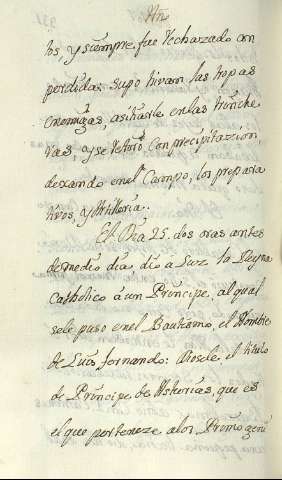 tos, y siempre fue rechazado con
perdida: supo hivan las tropas
enemigas, asitiarle en las trinche
ras, y se retiró con precipitazción,
dexando en el Campo, los prepara
tivos, y Artilleria.
El Dia 25. dos oras antes
de medio dia, dio a Luz la Reyna
Catholica á un Principe, al qual
se le puso en el Bautismo, el Nombre
de Luis fernando: Diosele el titulo
de Principe de Asturias, que es
el que perteneze a los Primogeni